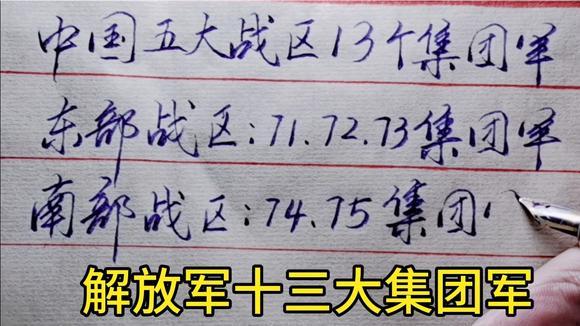 中国五大战区13个集团军
东部战区:71.72.73集团军
南部战区:74.75集团
解放军十三大集团军